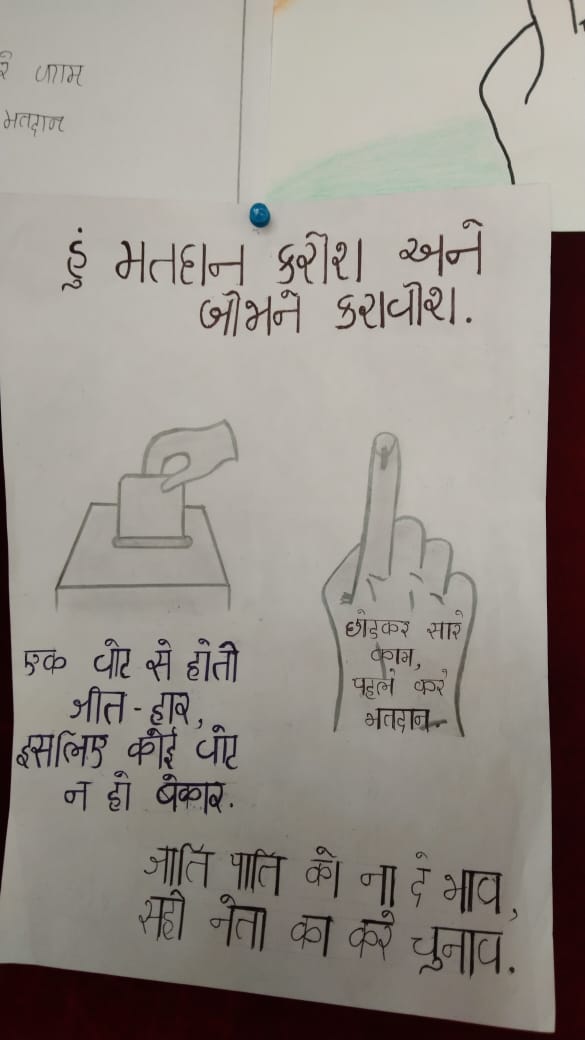 रे काम
मतदान
હું મતદાન કરીશ અને
બીજાને કરાવીશ.
एक वोट से होती
जीत - हार,
इसलिए कोई वोट
न हो बेकार.
छोडकर सारे
काम,
पहले करे
मतदान.
जाति पाति को ना दे भाव,
सही नेता का करे चुनाव.